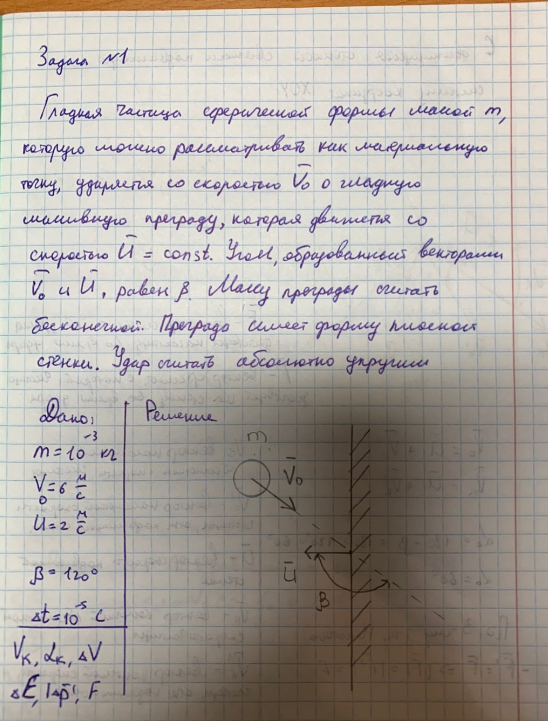 Задача №1
Гладкая частица сферической формы массой m,
которую можно рассматривать как материальную
точку, ударяется со скоростью V̄₀ о гладкую
массивную преграду, которая движется со
скоростью Ū = const. Угол, образованный векторами
V̄₀ и Ū, равен β. Массу преграды считать
бесконечной. Преграда имеет форму плоской
стенки. Удар считать абсолютно упругим
Дано:
Решение
m = 10⁻³ кг
V₀ = 6 м/с
U = 2 м/с
β = 120°
Δt = 10⁻⁵ с
Vк, αк, ΔV
ΔE, |Δp̄|, F
m
V̄₀
Ū
β